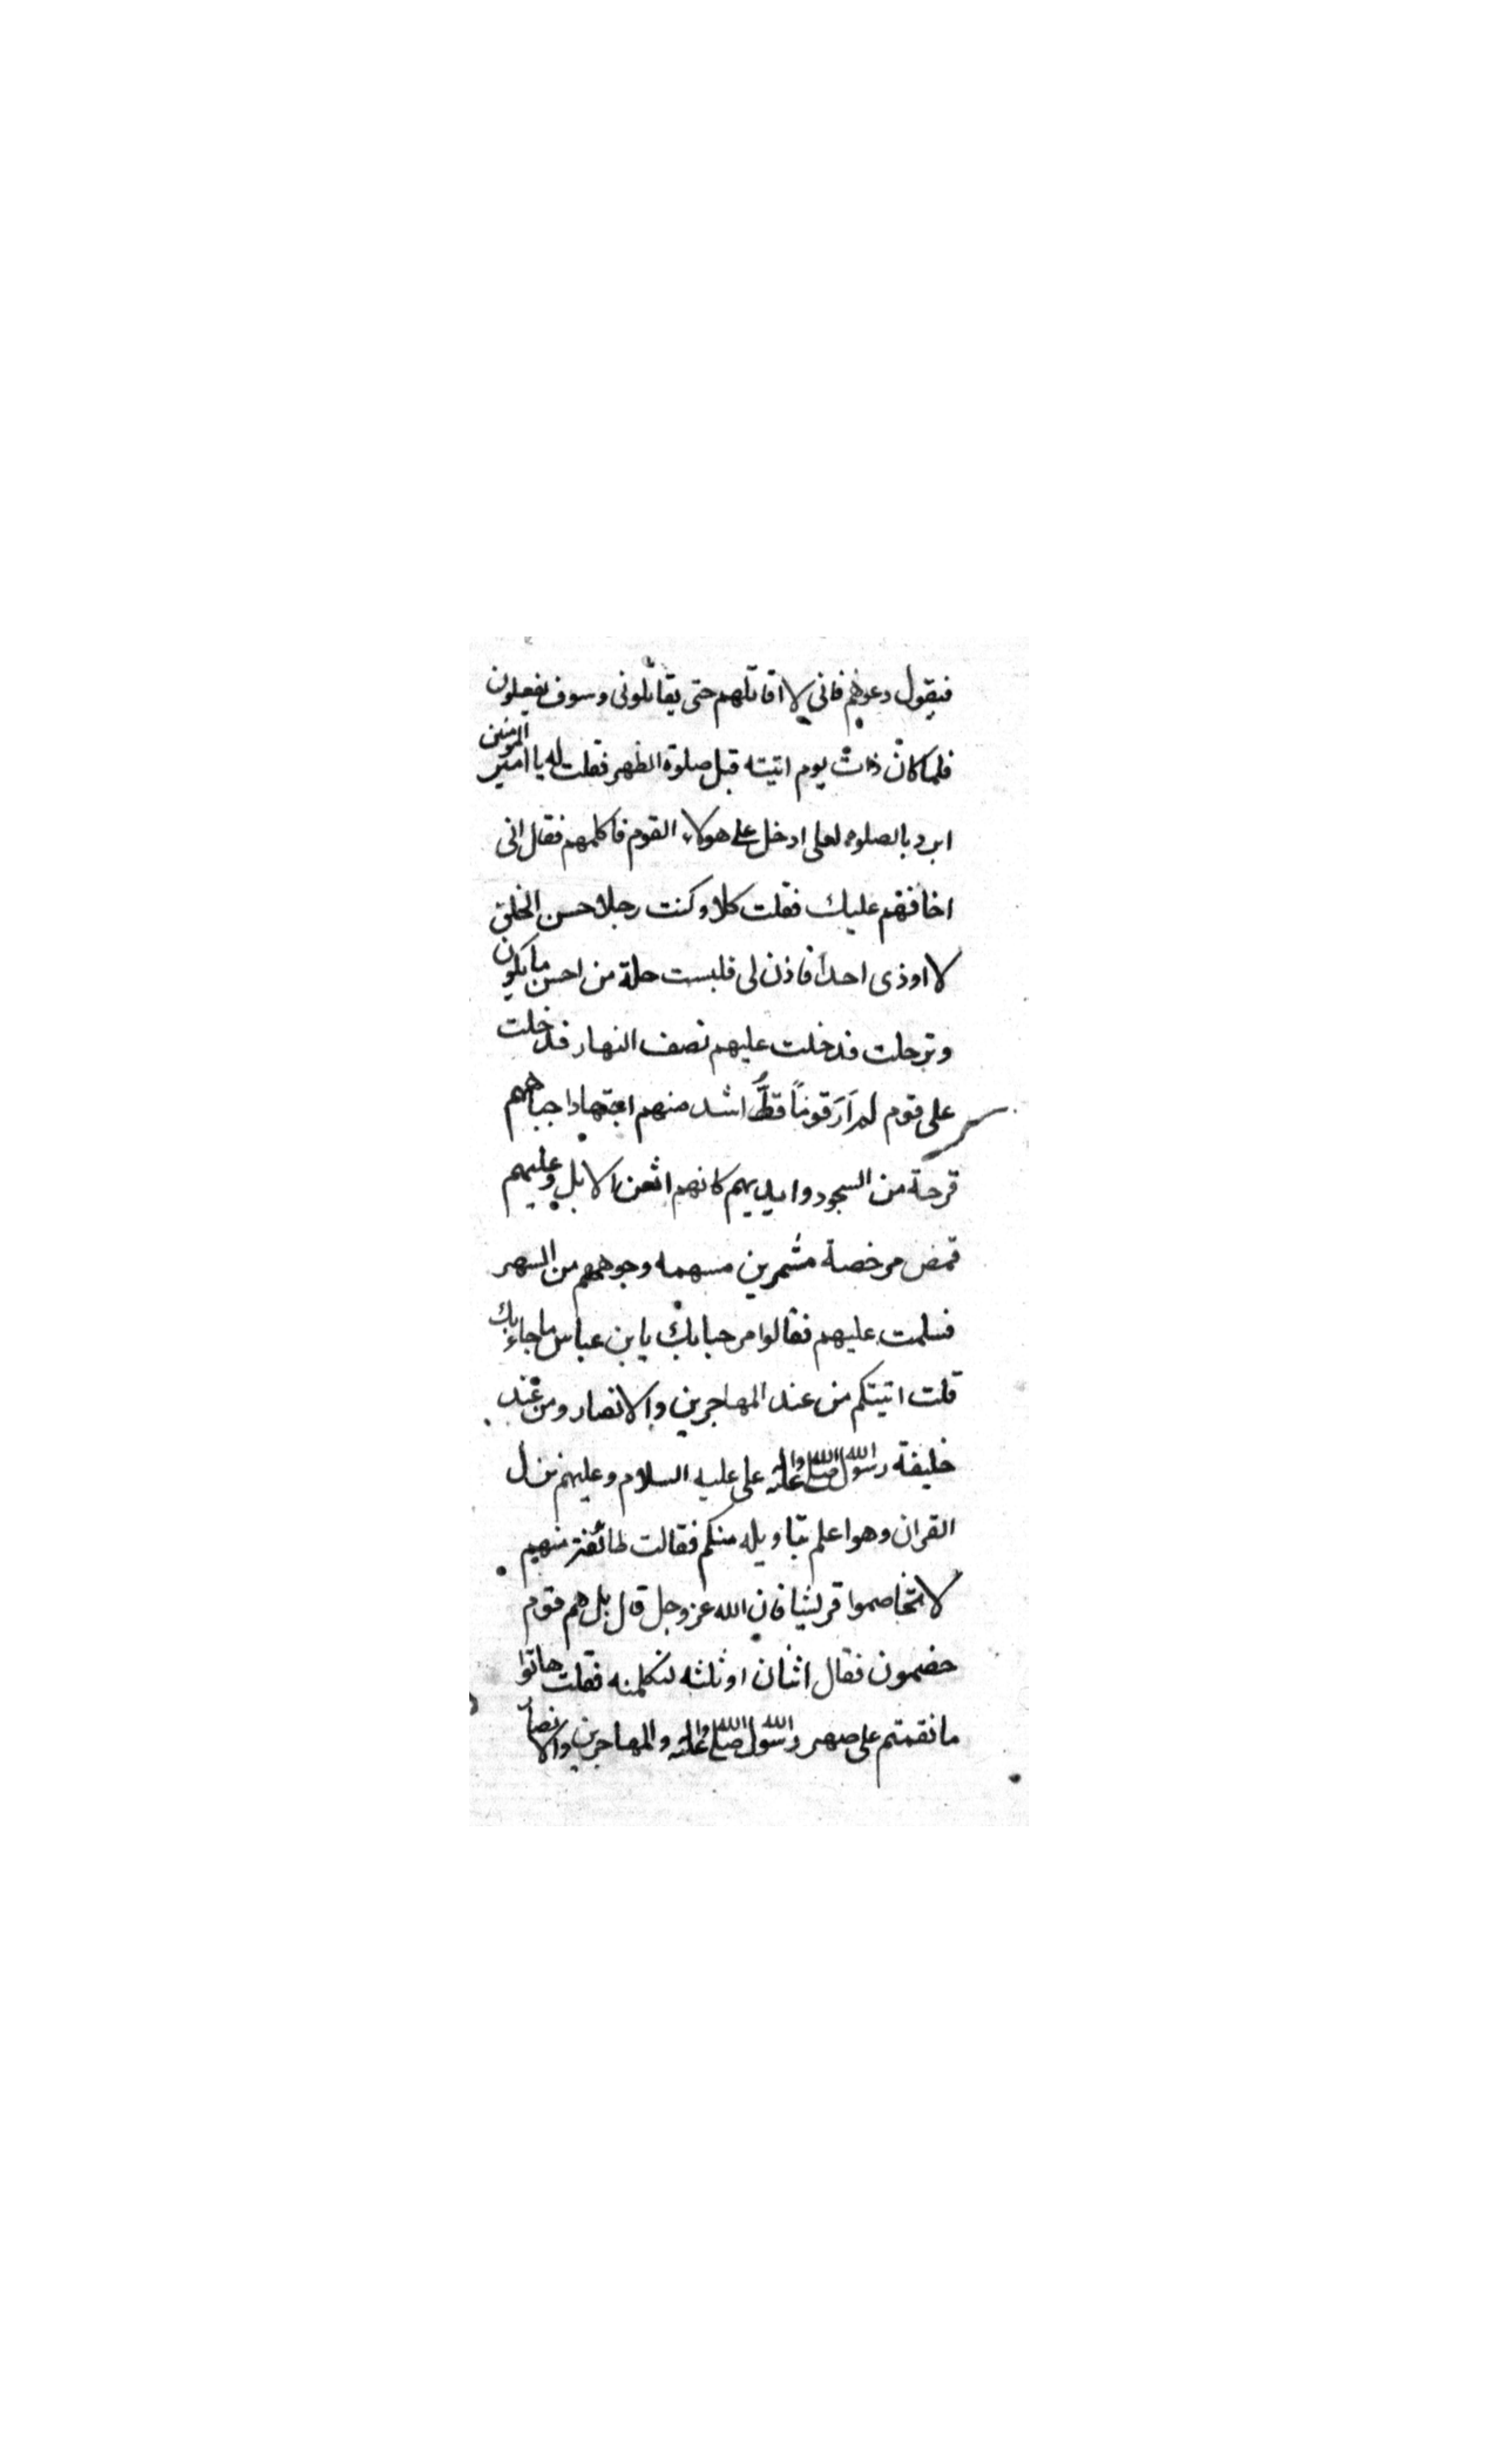 فيقول دعوهم فاني لا اقاتلهم حتى يقاتلونى وسوف يفعلون
فلما كان ذات يوم اتيته قبل صلوة الظهر فقلت له يا امير المومنين
ابرد بالصلوه لعلى ادخل على هولاء القوم فاكلمهم فقال انى
اخافهم عليك فقلت كلا وكنت رجلا حسن الخلق
لا اوذى احدا فاذن لى فلبست حلة من احسن ما يكون
وترجلت فدخلت عليهم نصف النهار فدخلت
على قوم لم اَرَ قوماً قطُّ اشد منهم اجتهادا جباههم
قرحة من السجود وايديهم كانهم اثفن الابل وعليهم
قمص مرخصة مشمرين مسهمه وجوههم من السهر
فسلمت عليهم فقالوا مرحبا بك يابن عباس ما جاء بك
قلت اتيتكم من عند المهاجرين والانصار ومن عند
خليفة رسول الله صلى الله عليه واله على عليه السلام وعليهم نزل
القران وهو اعلم بتاويله منكم فقالت طائفة منهم
لا تخاصموا قريشا فان الله عز وجل قال بل هم قوم
خصمون فقال اثنان او ثلثه لنكلمنه فقلت هاتوا
ما نقمتم على صهر رسول الله صلى الله عليه واله والمهاجرين والانصار